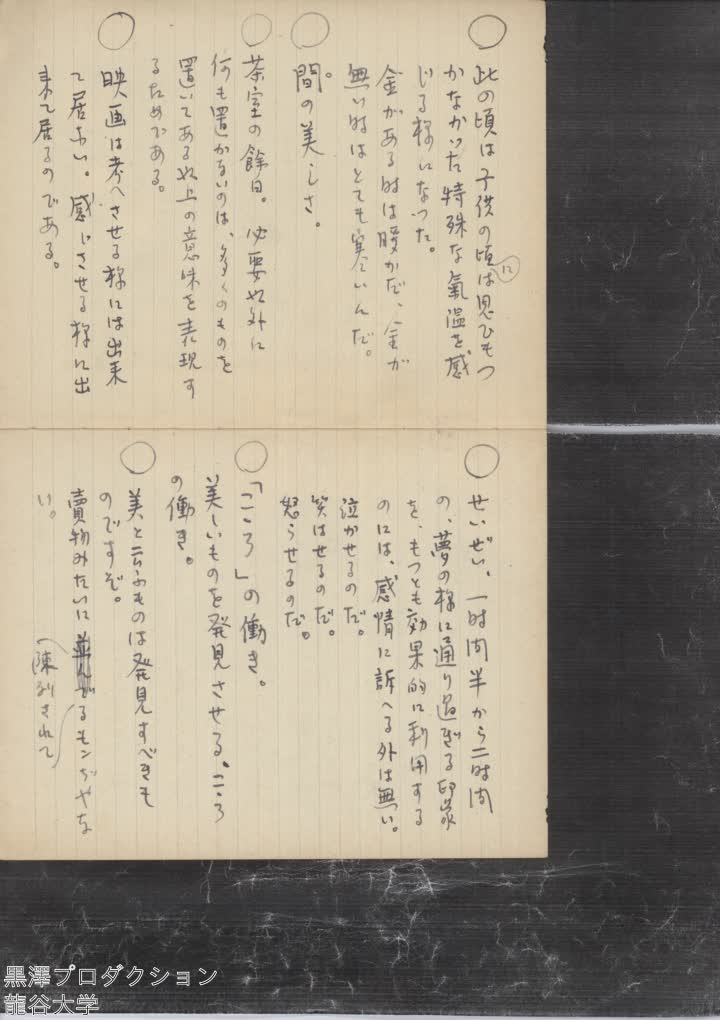 〇
此の頃は子供の頃には思ひもつ
かなかつた特殊な氣温を感
じる様になつた。
金がある時は暖かだ、金が
無い時はとても寒いんだ。
〇
間の美しさ。
〇
茶室の餘白。必要以外に
何も置かないのは、多くのものを
置いてある以上の意味を表現す
るためである。
〇
映画は考へさせる様には出来
て居ない。感じさせる様に出
来て居るのである。
〇
せいぜい、一時間半から二時間
の、夢の様に通り過ぎる印象
を、もつとも効果的に利用する
のには、感情に訴へる外は無い。
泣かせるのだ。
笑はせるのだ。
怒らせるのだ。
〇
「こころ」の働き。
美しいものを発見させる。こころ
の働き。
〇
美と云ふものは発見すべきも
のですぞ。
賣物みたいに陳列されてるモンぢやな
い。
黒澤プロダクション
龍谷大学